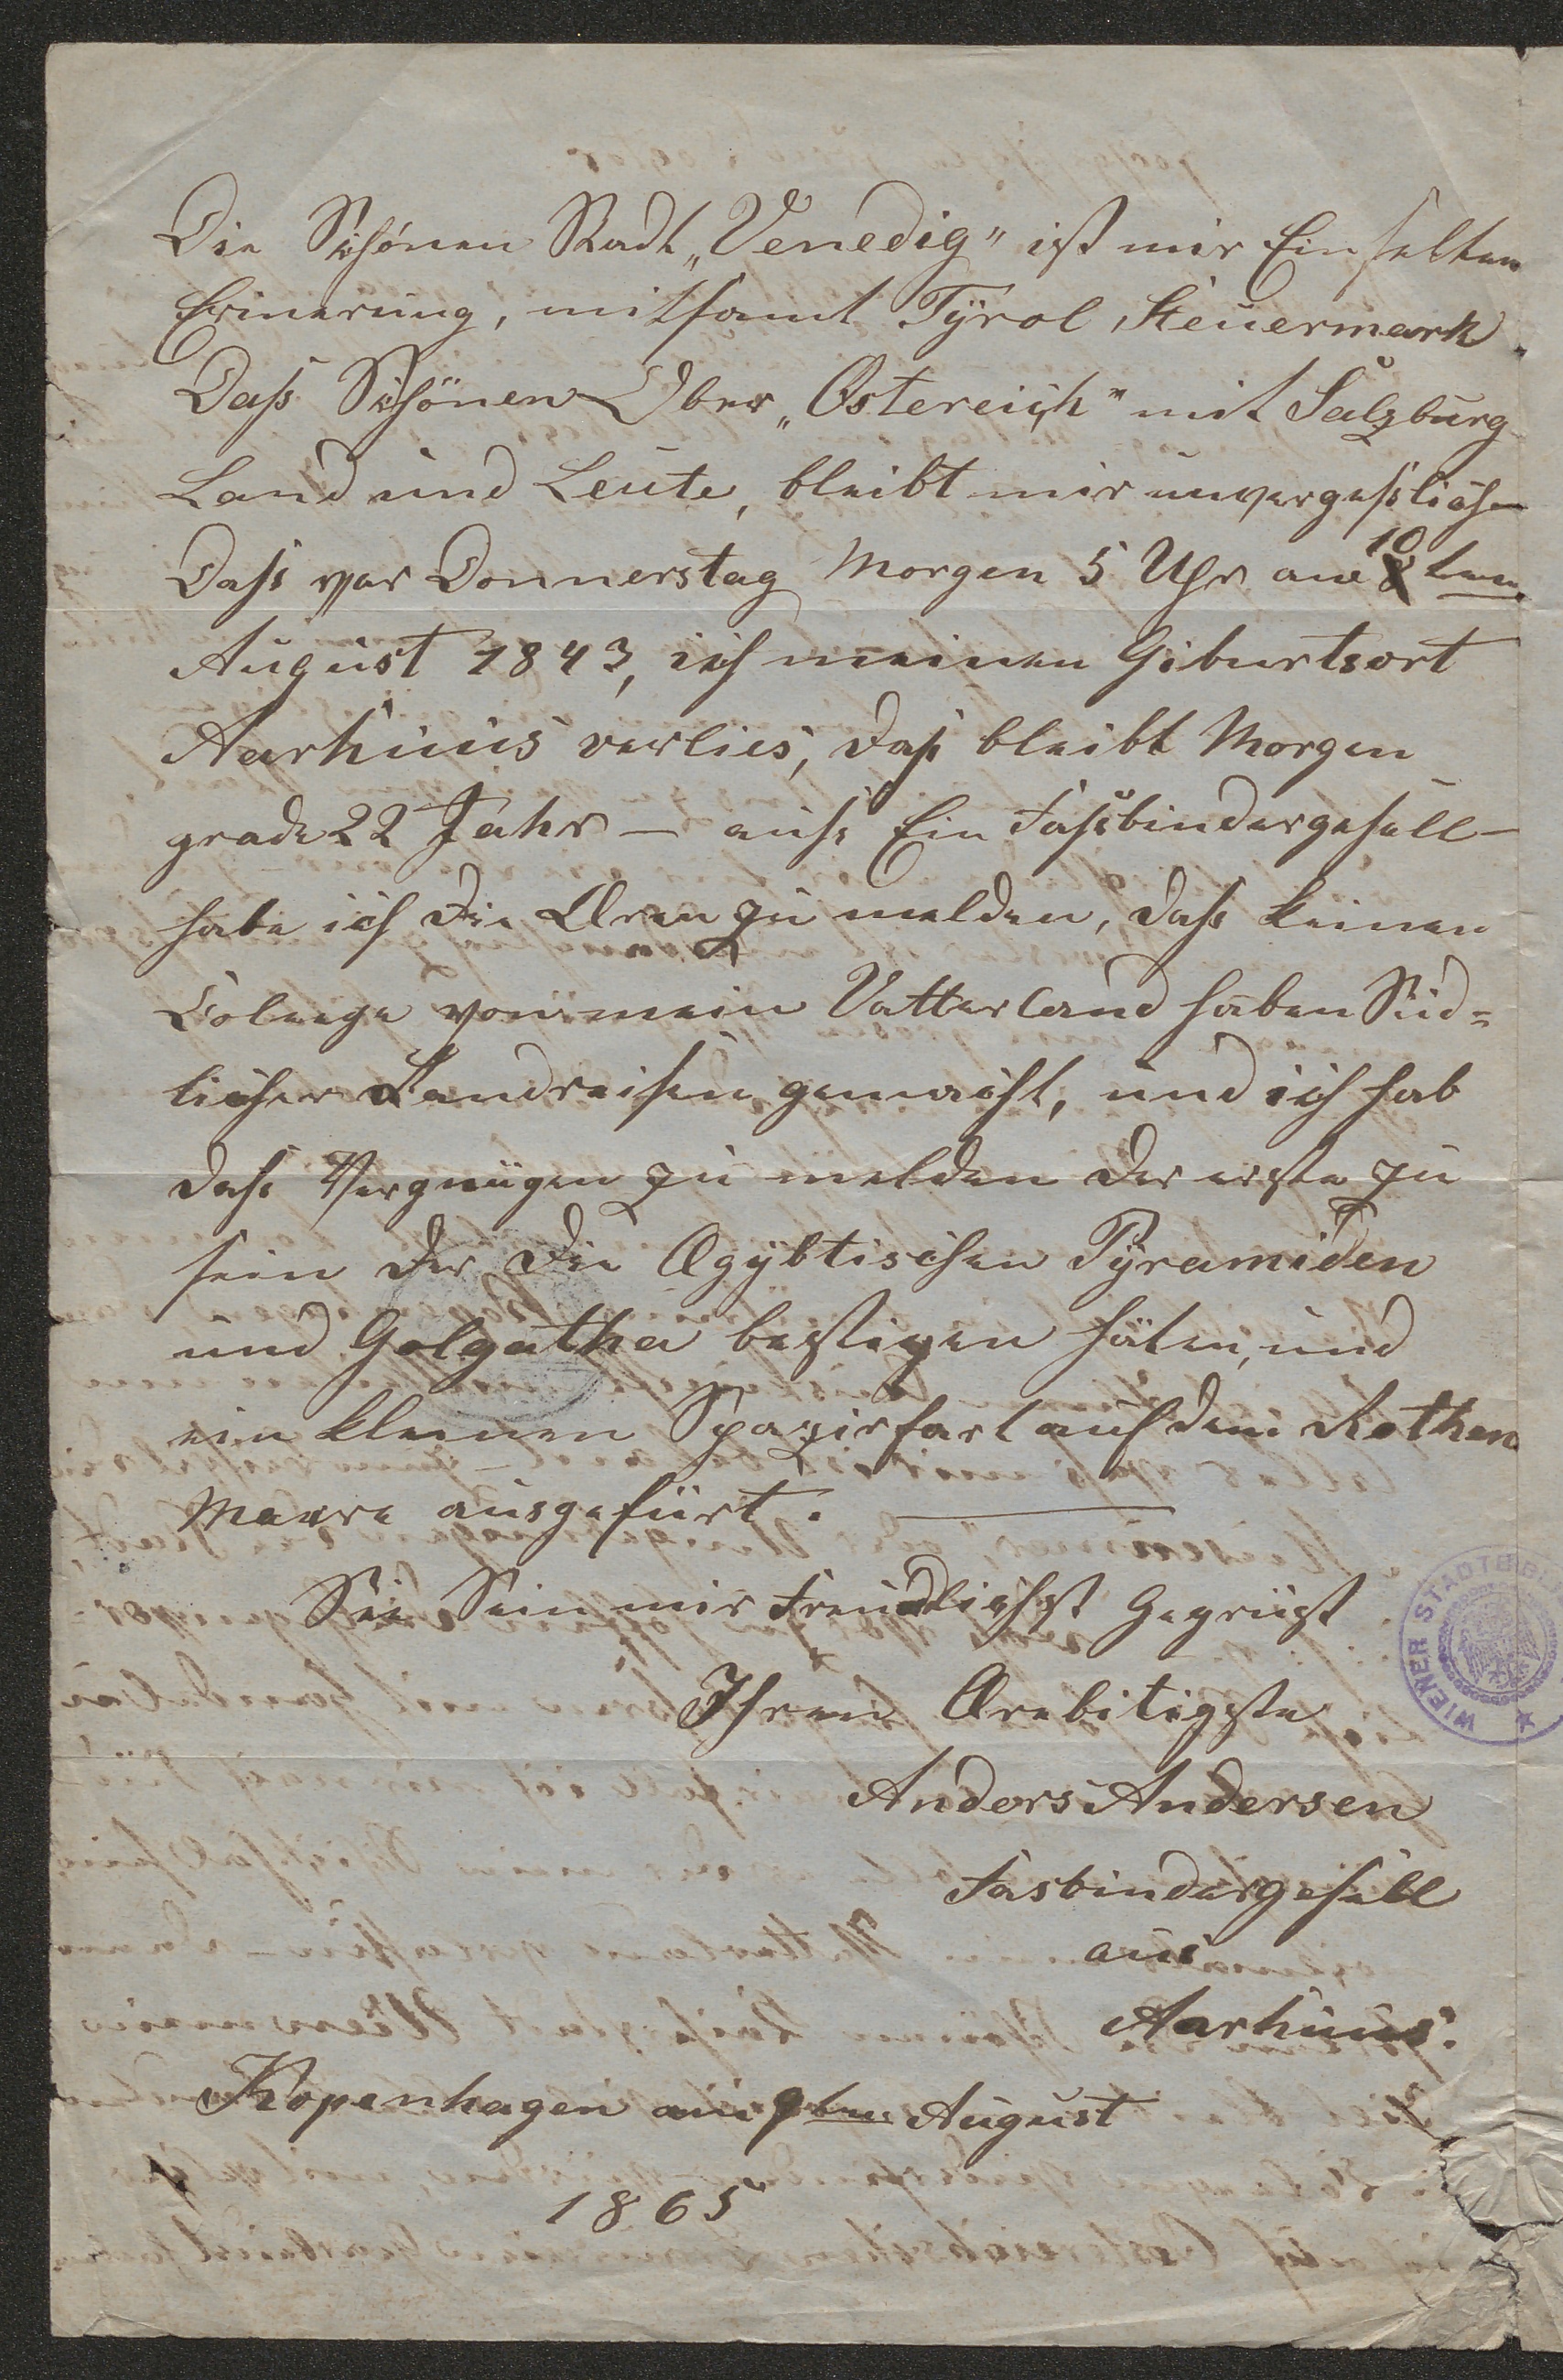 Die Schönen Stadt „Venedig" ist mir Ein selten
Erinerung, mitsamt Tÿrol, Steuermark.
Daß Schönen Ober „Østereich" mit Salzburg
Land und Leute, bleibt mir unvergeßlich
Daß war Donnerstag Morgen 5 Uhr am 10 ten
August 1843, ich meinen Giburtsort
Aarhuus verlies, daß bleibt Morgen
grade 22 Jahr — auß Ein Faßbindergesell —
habe ich die Æren zu melden, daß keinen
Colege von mein Vatterland haben Süd=
licher Landreisen gemacht, und ich hab
daß Vergnügen zu melden der erste zu
sein der die Ægÿbtischen Pÿramiden
und Golgatha bestigen häten, und
ein kleinen Spazirfart auf dem Rothen
Meere ausgefürt. —
Sie Sein mir Freudlichst Gegrüst
Ihren Ærebitigste
Anders Andersen
Fasbindergesell
aus
Aarhuus.
Kopenhagen am 9ten August
1865
WIENER STADTBIBL